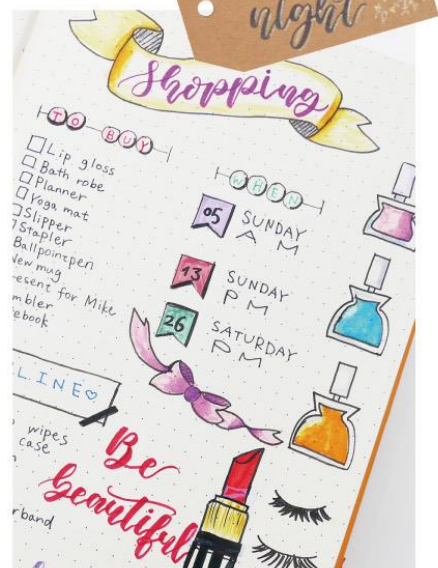 night
Shopping
TO BUY
Lip gloss
Bath robe
Planner
Yoga mat
Slipper
Stapler
Ballpointpen
New mug
esent for Mike
mbler
ebook
WHEN
05 SUNDAY
AM
13 SUNDAY
PM
26 SATURDAY
PM
LINE
wipes
case
rband
Be
beautiful